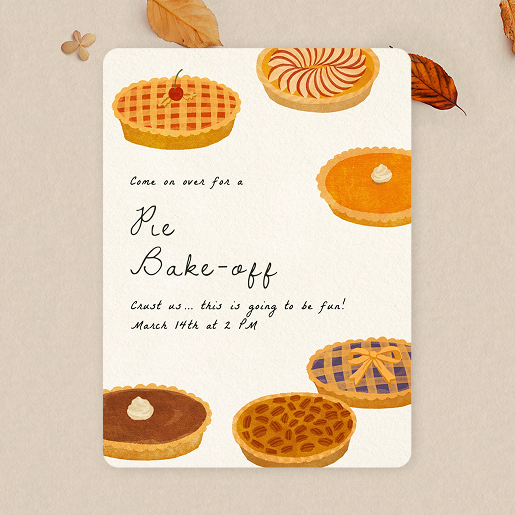 Come on over for a
Pie
Bake-off
Crust us... this is going to be fun!
March 14th at 2 PM